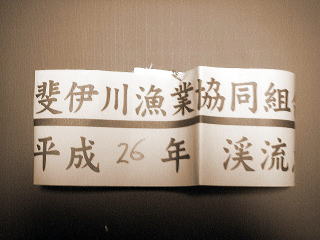 斐伊川漁業協同組
平成 26 年 渓流